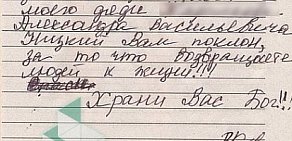 моего дяди
Александра Васильевича
Низкий Вам поклон,
за то что возвращаете
людей к жизни!!!
Храни Вас Бог!!